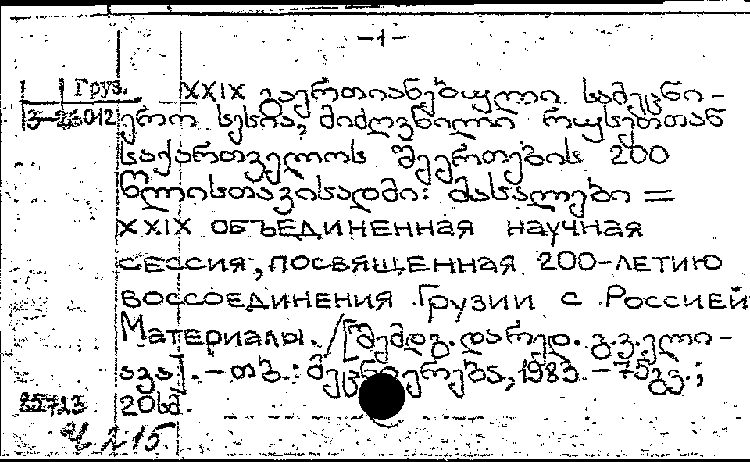 -1-
Груз. XXIX გაერთიანებული სამეცნი-
3-25012 ერო სესია, მიძღვნილი რუსეთთან
საქართველოს შეერთების 200
წლისთავისადმი: მასალები =
XXIX ОБЪЕДИНЕННАЯ НАУЧНАЯ
СЕССИЯ, ПОСВЯЩЕННАЯ 200-ЛЕТИЮ
ВОССОЕДИНЕНИЯ Грузии с Россией
Материалы. /[შემდგ. და რედ. გ.ვ.ელი-
ავა]. - თბ.: მეცნიერება, 1983. - 75გვ.;
85723 20სმ.